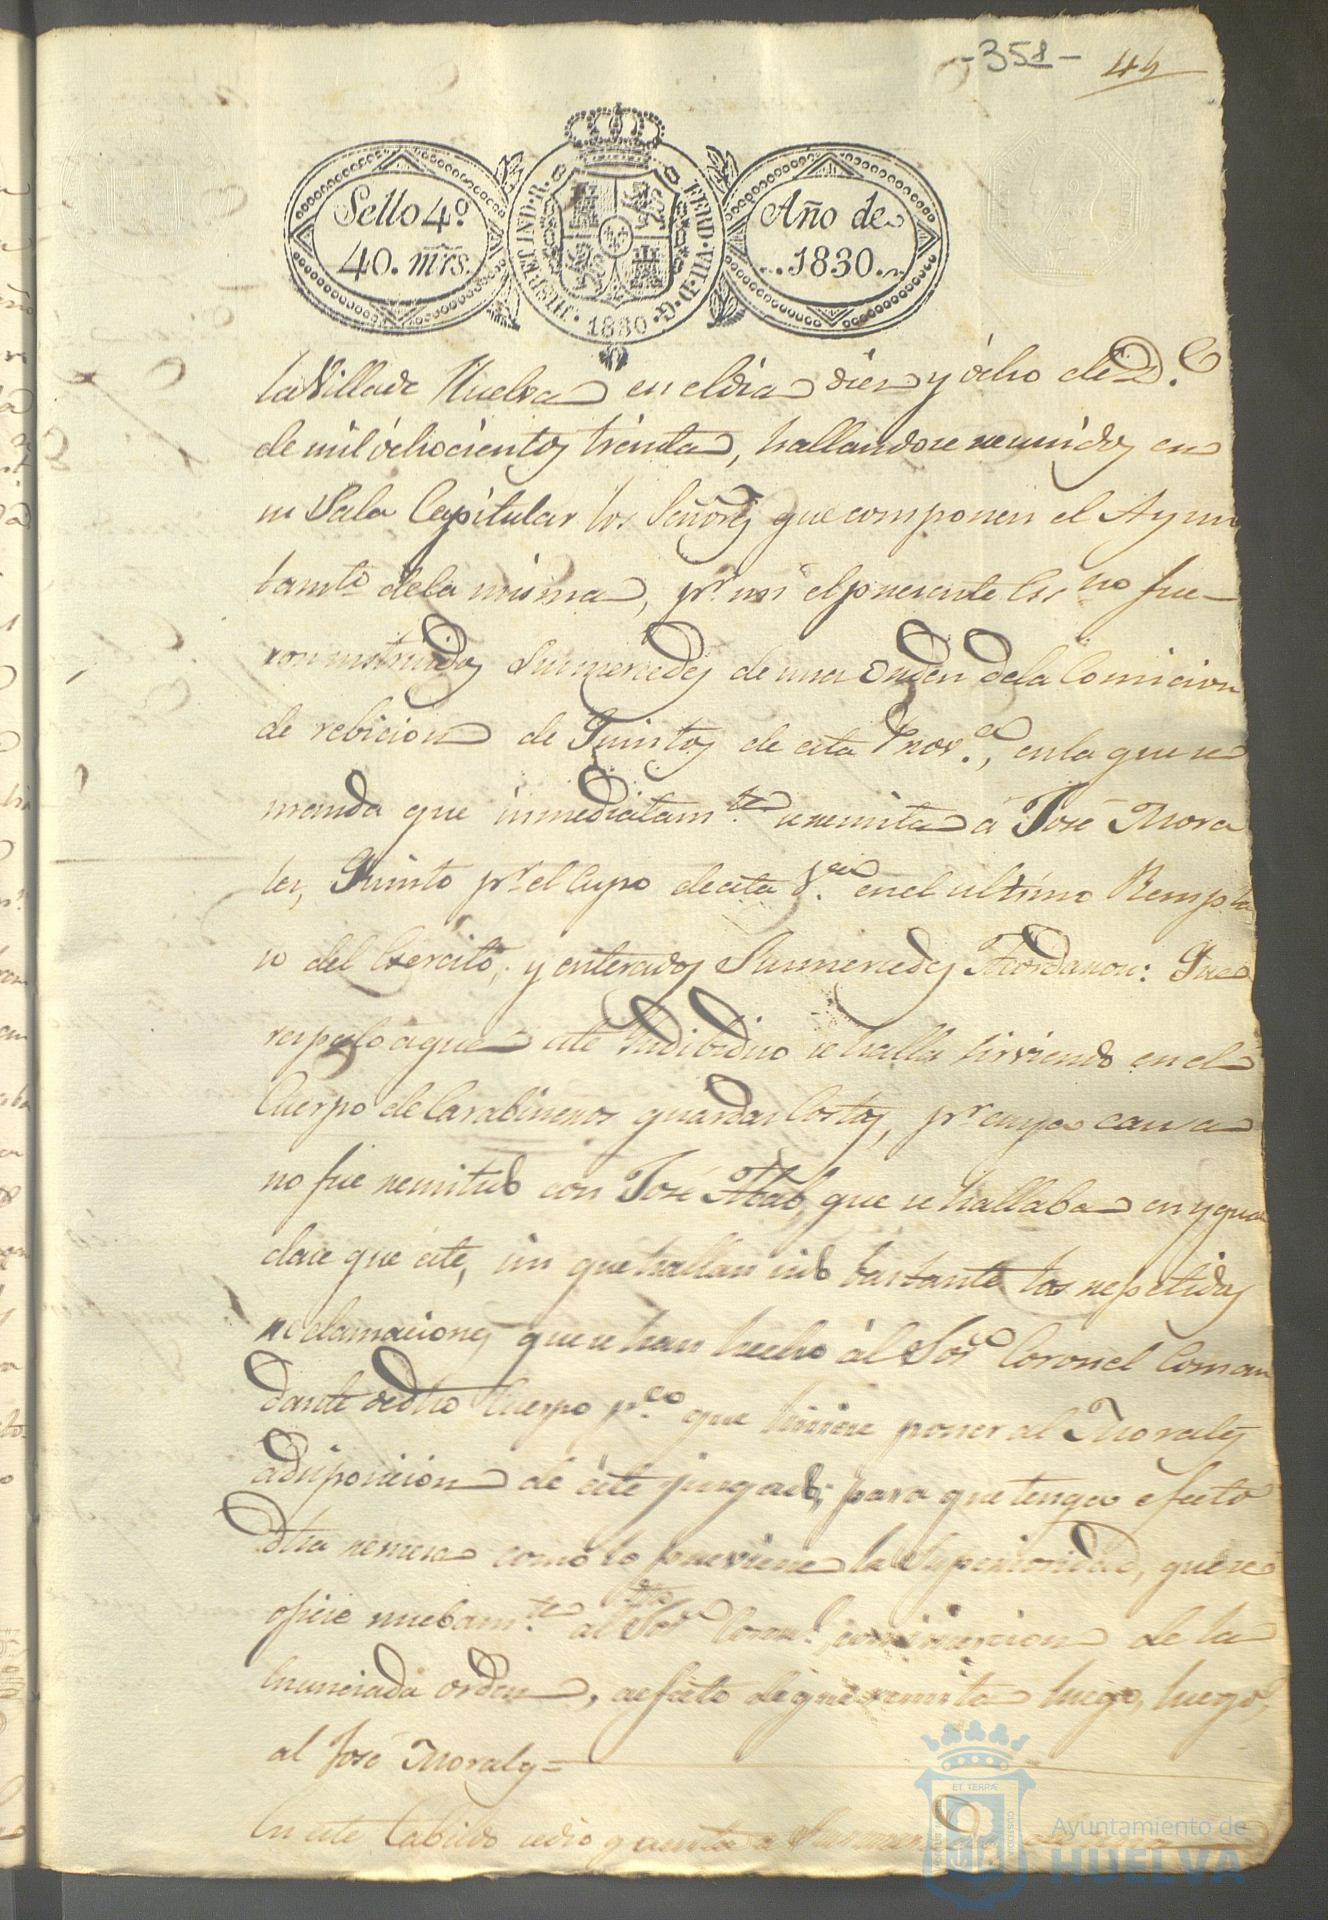 -358- 44
Sello 4º
40. mrs.
HISP. ET IND. R. FERD. VII. D. G. 1830
Año de
1830.
la Villa de Huelva en el dia diez y ócho de D.e
de mil óchocientos treinta, hallandose reunidos en
su Sala Capitular los Señores que componen el Ayun
tamto. de la misma, pr. mi el presente Essno fue-
ron instruidos Sus mercedes de una Orden de la Comicion
de rebicion de Quintos de esta Prova., en la que se
manda que inmediatamte. se remita á José Mora
les, Quinto pr. el Cupo de esta Va. en el ultimo Rempla
so del Exercito, y enterados Sus mercedes Acordaron: Que
respecto a que este Indibiduo se halla sirviendo en el
Cuerpo de Carabineros guardas Costas, pr. cuya causa
no fue remitido con José Abad, que se hallaba en ygual
clase que este, sin que hallan sido bastante las repetidas
reclamaciones que se han hecho ál Sor. Coronel Coman
dante de dho Cuerpo pa. que hiciese poner al Morales
a disposicion de éste juzgado; para que tenga efecto
dha remesa como lo previene la Superioridad, que se
oficie nuebamte. al dho Sor. Coronl. con incercion de la
enunciada orden, a efecto de que remita luego, luego,
al José Morales=
En este Cabildo se dio quenta a Sus mercedes de una
ET TERRÆ
CUSTODIA
Ayuntamiento de
HUELVA